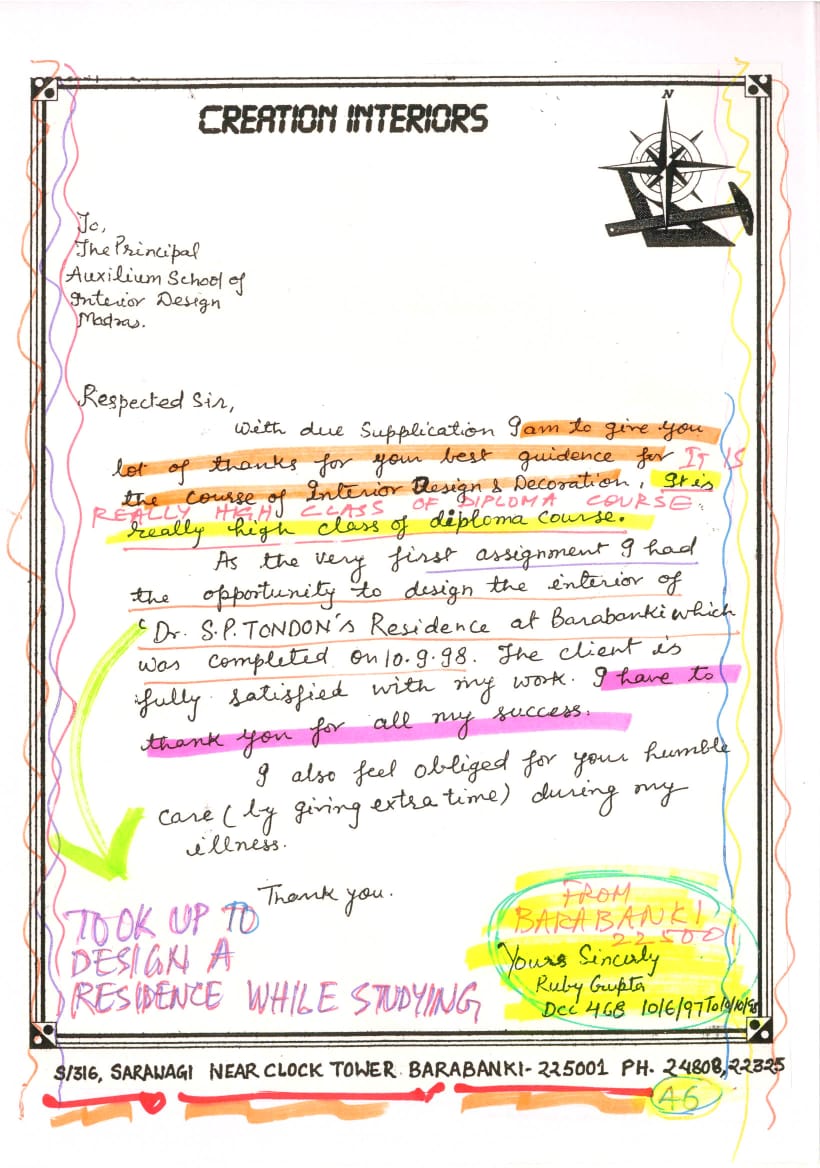 CREATION INTERIORS
N
To,
The Principal
Auxilium School of
Interior Design
Madras.
Respected Sir,
With due Supplication I am to give you
lot of thanks for your best guidence for
the course of Interior Design & Decoration, It is
IT IS
REALLY HIGH CLASS OF DIPLOMA COURSE.
really high class of diploma course.
As the very first assignment I had
the opportunity to design the interior of
Dr. S.P. TONDON's Residence at Barabanki which
was completed on 10.9.98. The client is
fully satisfied with my work. I have to
thank you for all my success.
I also feel obliged for your humble
care (by giving extra time) during my
illness.
Thank you.
TOOK UP TO
DESIGN A
RESIDENCE WHILE STUDYING
FROM
BARABANKI
225001
Yours Sincerly
Ruby Gupta
Dcc 468 10/6/97 To
S/316, SARAWAGI NEAR CLOCK TOWER BARABANKI- 225001 PH. 24808, 22325
A6